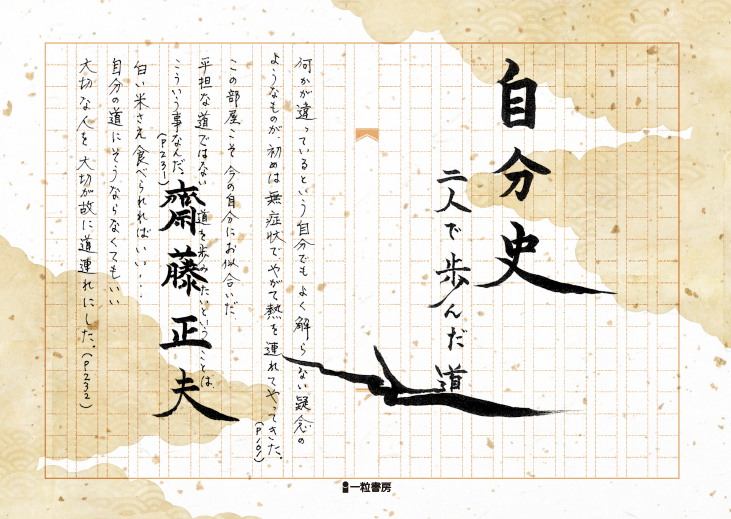 自分史
二人で歩んだ道
何かが違っているという自分でもよく解らない疑念の
ようなものが、初めは無症状で、やがて熱を連れてやってきた。(P101)
この部屋こそ今の自分にお似合いだ。
平担な道ではない道を歩みたいということは、
こういう事なんだ。(P231)
齋藤正夫
白い米さえ食べられればいい・・・
自分の道にそうならなくてもいい
大切な人を大切が故に道連れにした。(P232)
一粒書房